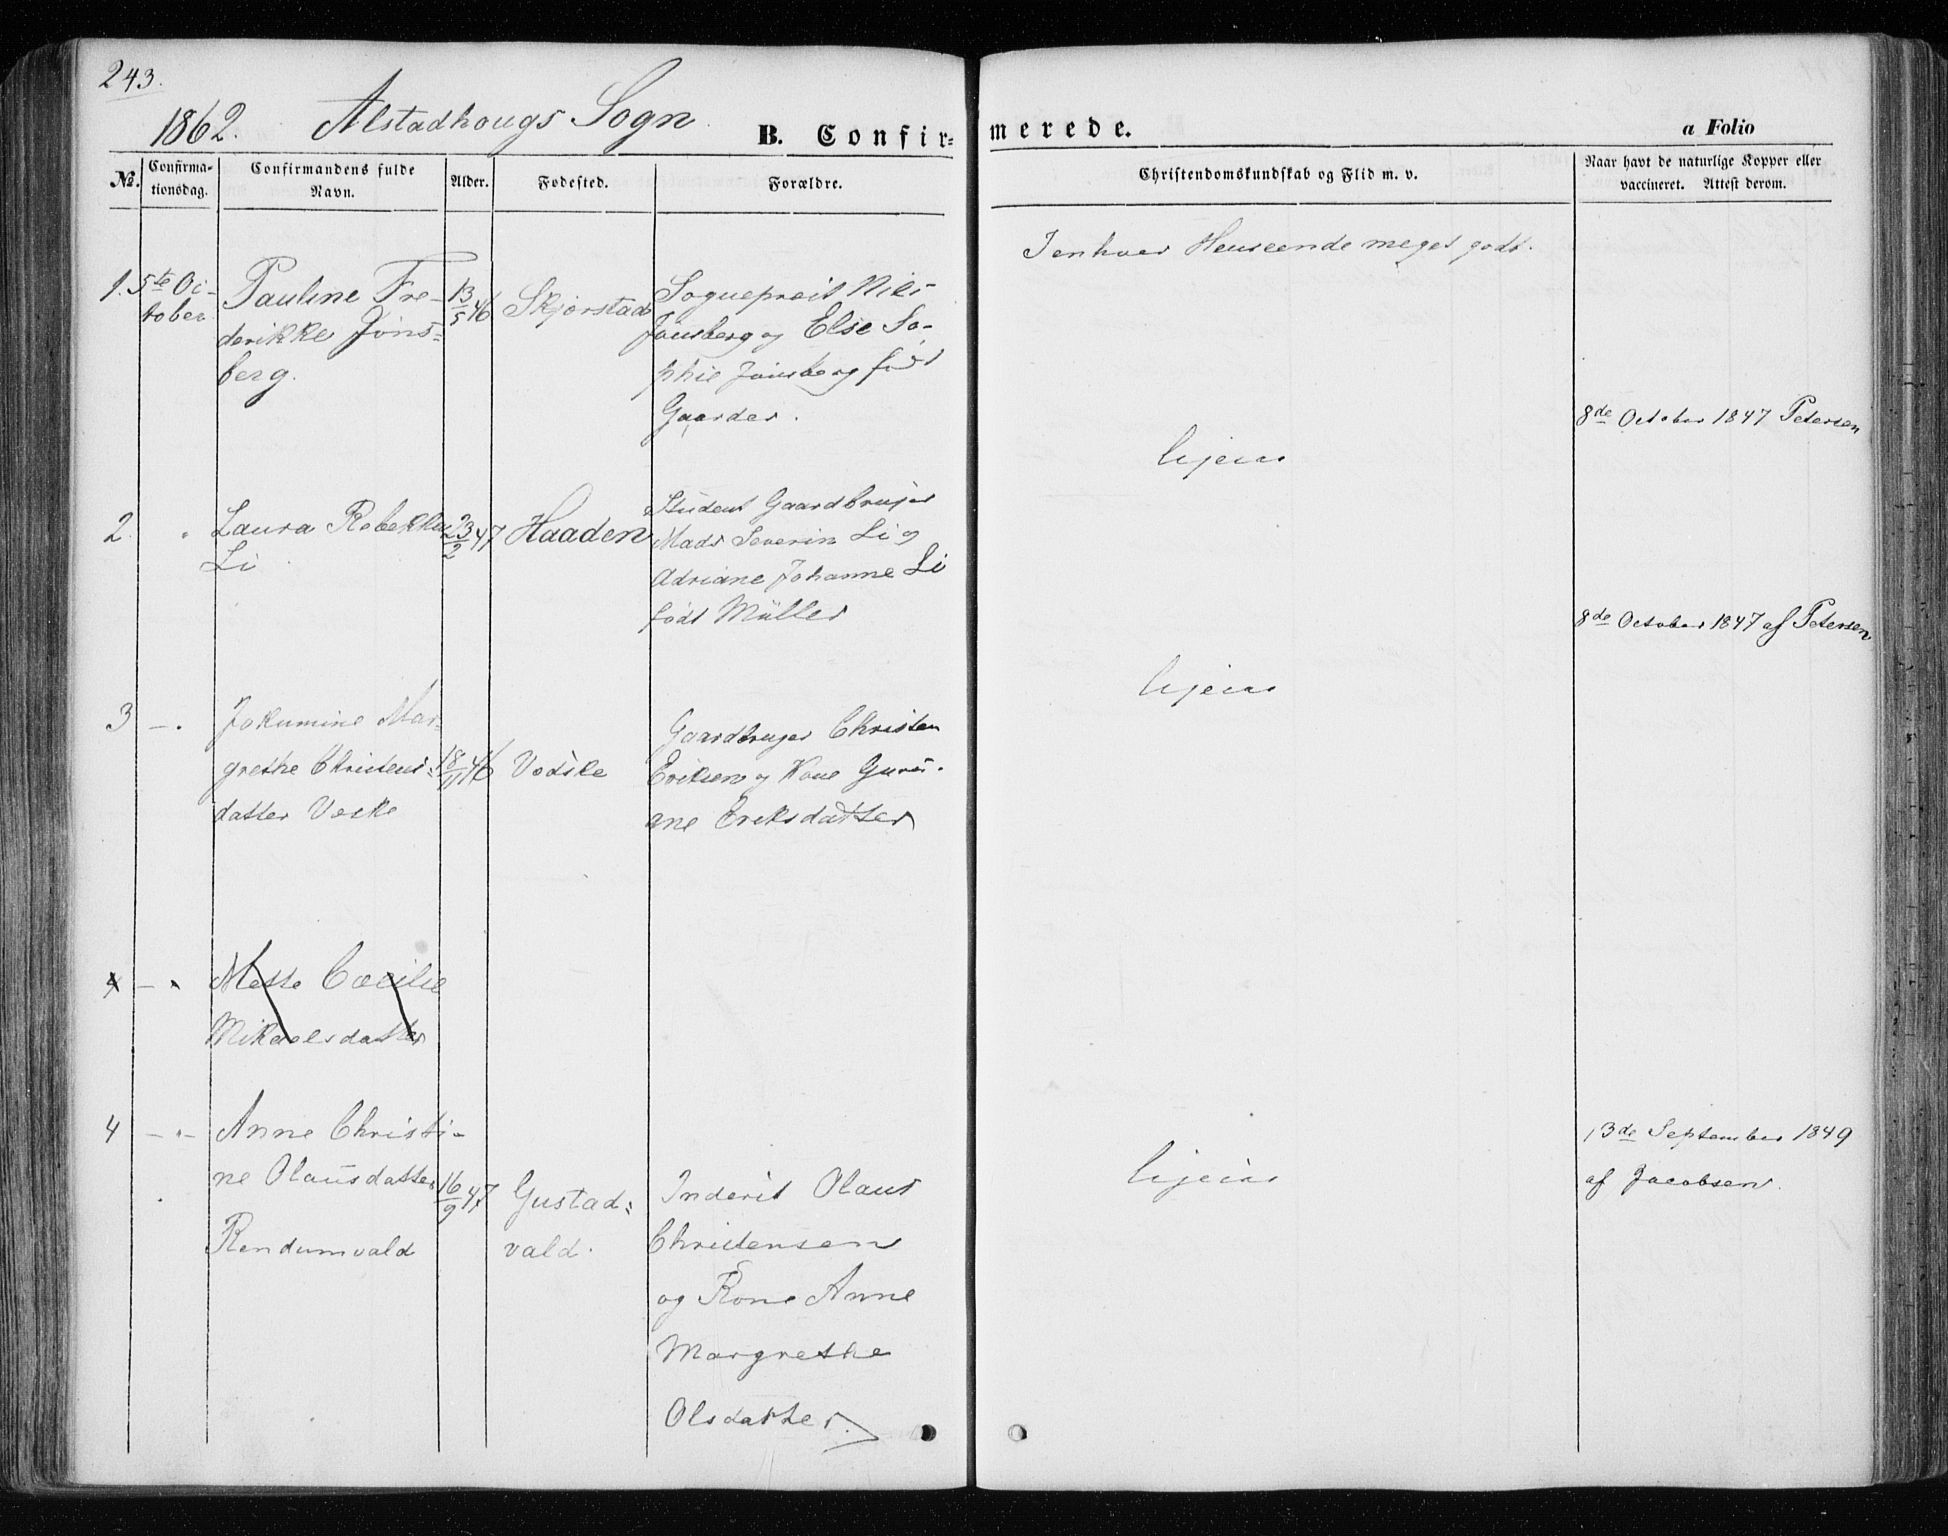 243.
1862. Alstadhougs Sogn.
B. Confirmerede.
a Folio
No.
Confirmationsdag.
Confirmandens fulde Navn.
Alder.
Fødested.
Forældre.
Christendomskundskab og Flid m. v.
Naar havt de naturlige Kopper eller
vaccineret. Attest derom.
1. 5te Oc-
tober
Pauline Fre-
derikke Jøns-
berg.
13/5 46
Skjørstad
Sognepræst Niels
Jønsberg og Else So-
phie Jønsberg født
Gaarder.
Ienhver Henseende meget godt.
2.
Laura Rebekka
Li
23/2 47
Haaden
Student Gaardbruger
Mads Severin Li og
Adriane Johanne Li
født Müller
ligesaa
8de October 1847 Petersen
3 - .
Jokumine Mar-
grethe Christens-
datter Veske
18/11 46
Vodske
Gaardbruger Christen
Eriksen og Kone
ane Eriksdatter
ligesaa
8de October 1847 af Petersen
4 -
Mette Cecilie
Mikaelsdatter
4 - " -
Anne Christi-
ne Olausdatter
Rendumvald
16/9 47
Gustad-
vald.
Inderst Olaus
Christensen
og Kone Anne
Margrethe
Olsdatter.
ligesaa
13de September 1849
af Jacobsen.